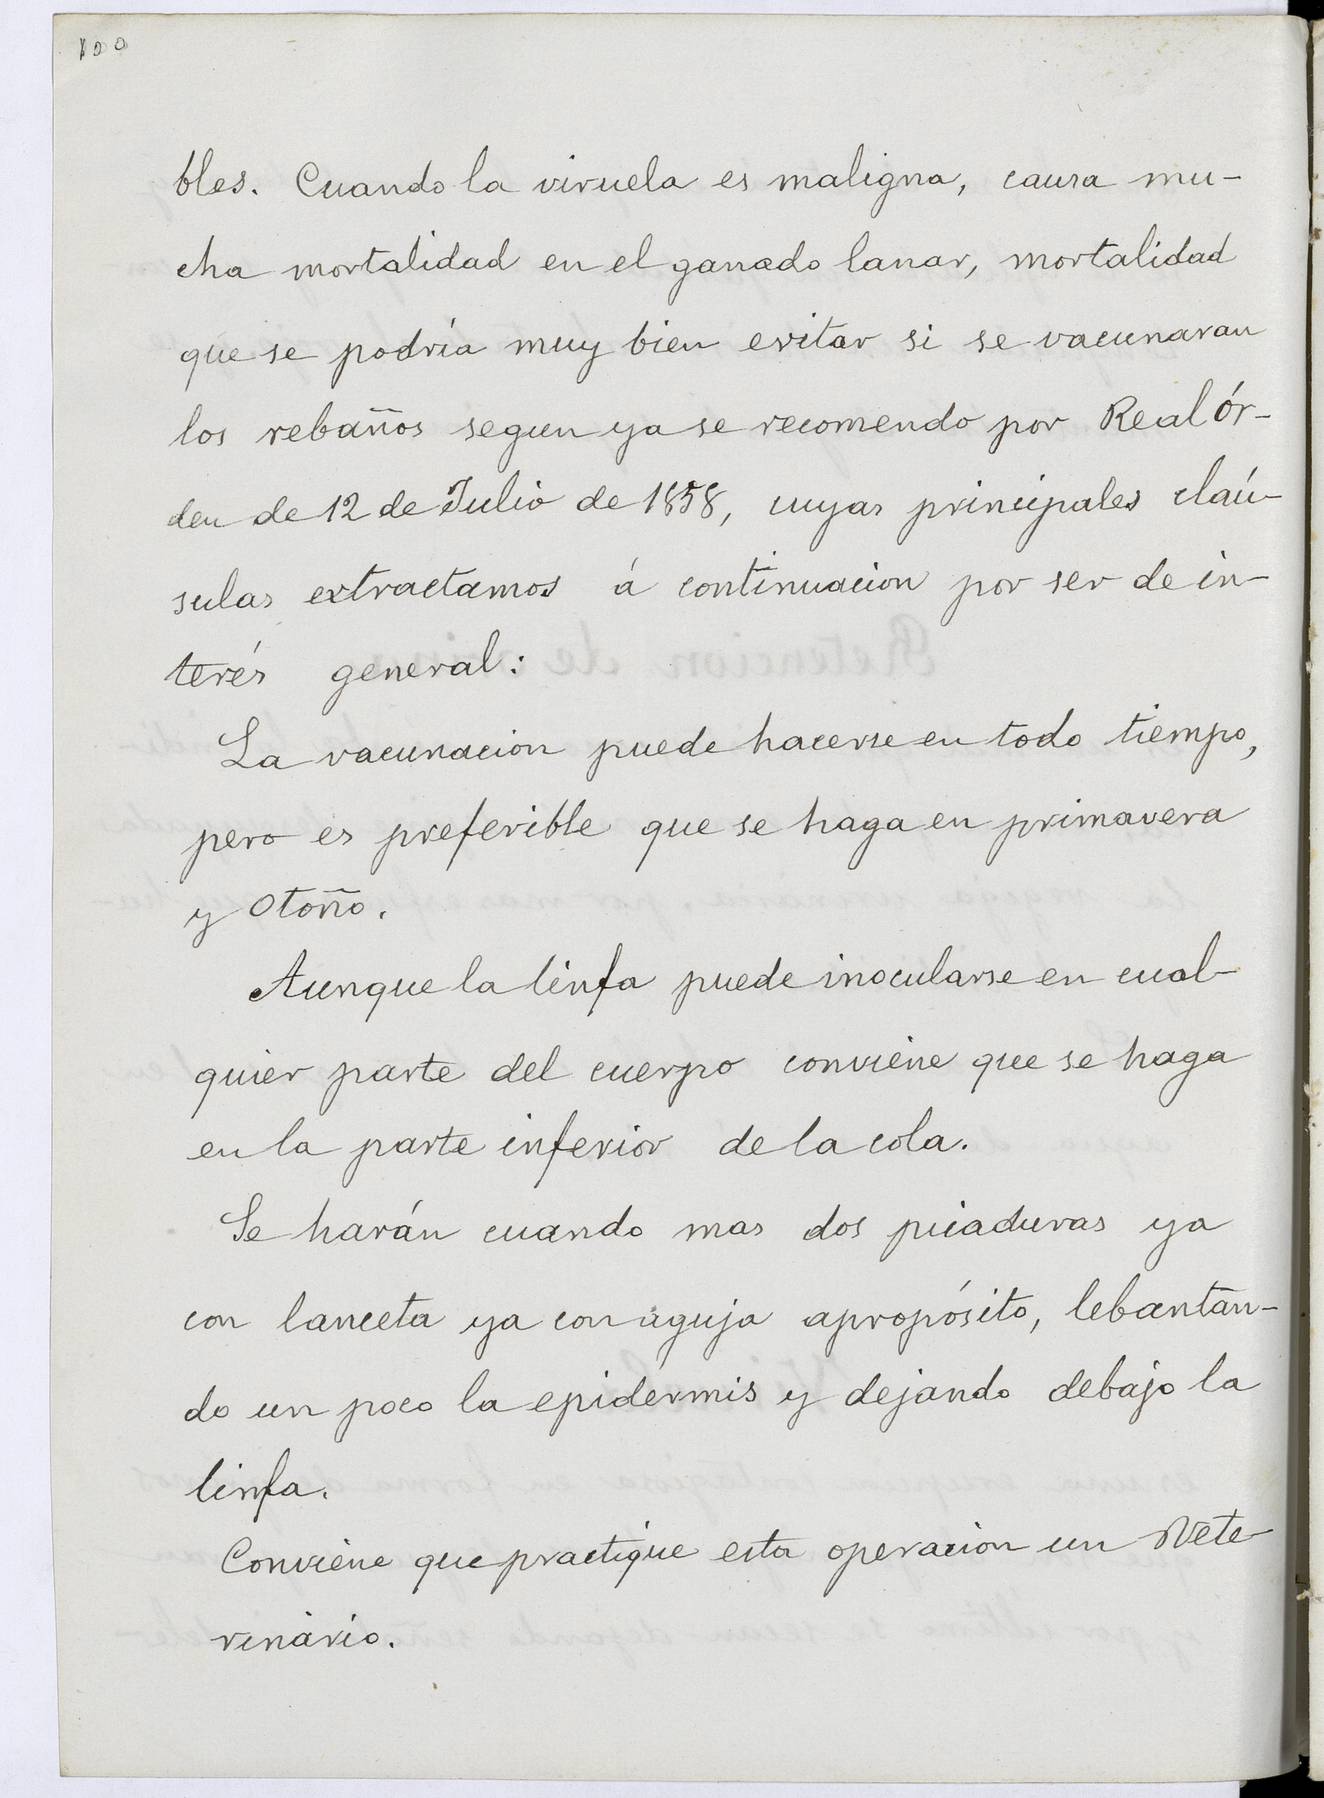 100
bles. Cuando la viruela es maligna, causa mu-
cha mortalidad en el ganado lanar, mortalidad
que se podría muy bien evitar si se vacunaran
los rebaños segun ya se recomendo por Real ór-
den de 12 de Julio de 1858, cuyas principales claú-
sulas extractamos á continuacion por ser de in-
terés general:
La vacunacion puede hacerse en todo tiempo,
pero es preferible que se haga en primavera
y Otoño.
Aunque la linfa puede inocularse en cual-
quier parte del cuerpo conviene que se haga
en la parte inferior de la cola.
Se harán cuando mas dos picaduras ya
con lanceta ya con aguja apropósito, lebantan-
do un poco la epidermis y dejando debajo la
linfa.
Conviene que practique esta operacion un Vete-
rinário.